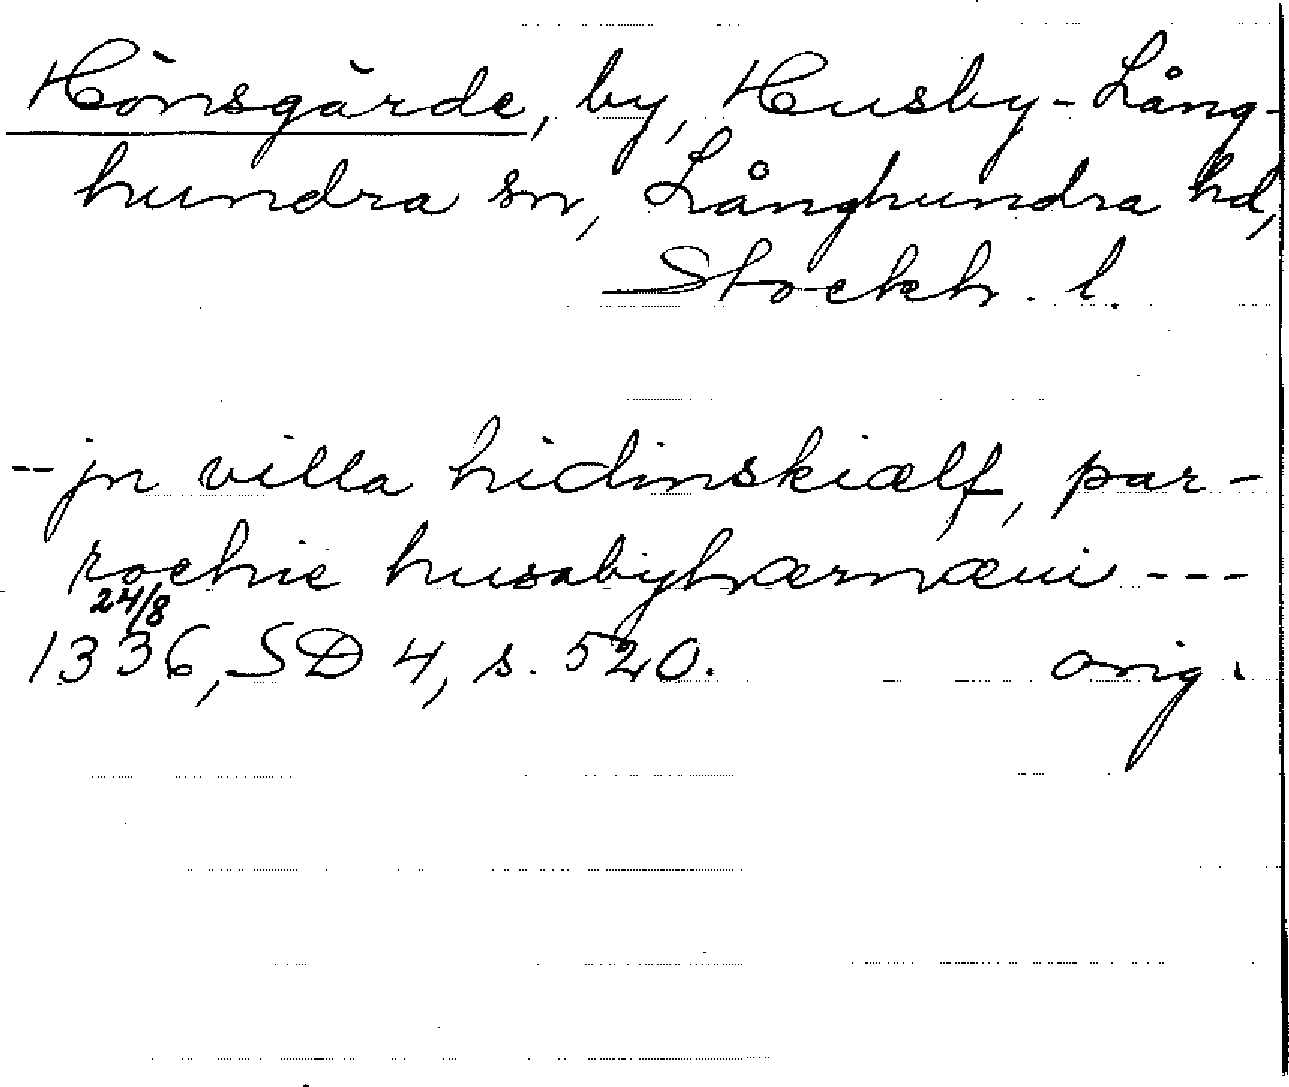 Hönsgärde, by, Husby-Lång-
hundra sn, Långhundra hd,
Stockh. l.
-- jn villa hidinskiælf, par-
rochie husabyhærnæui ---
24/8
1336, SD 4, s. 520. orig.